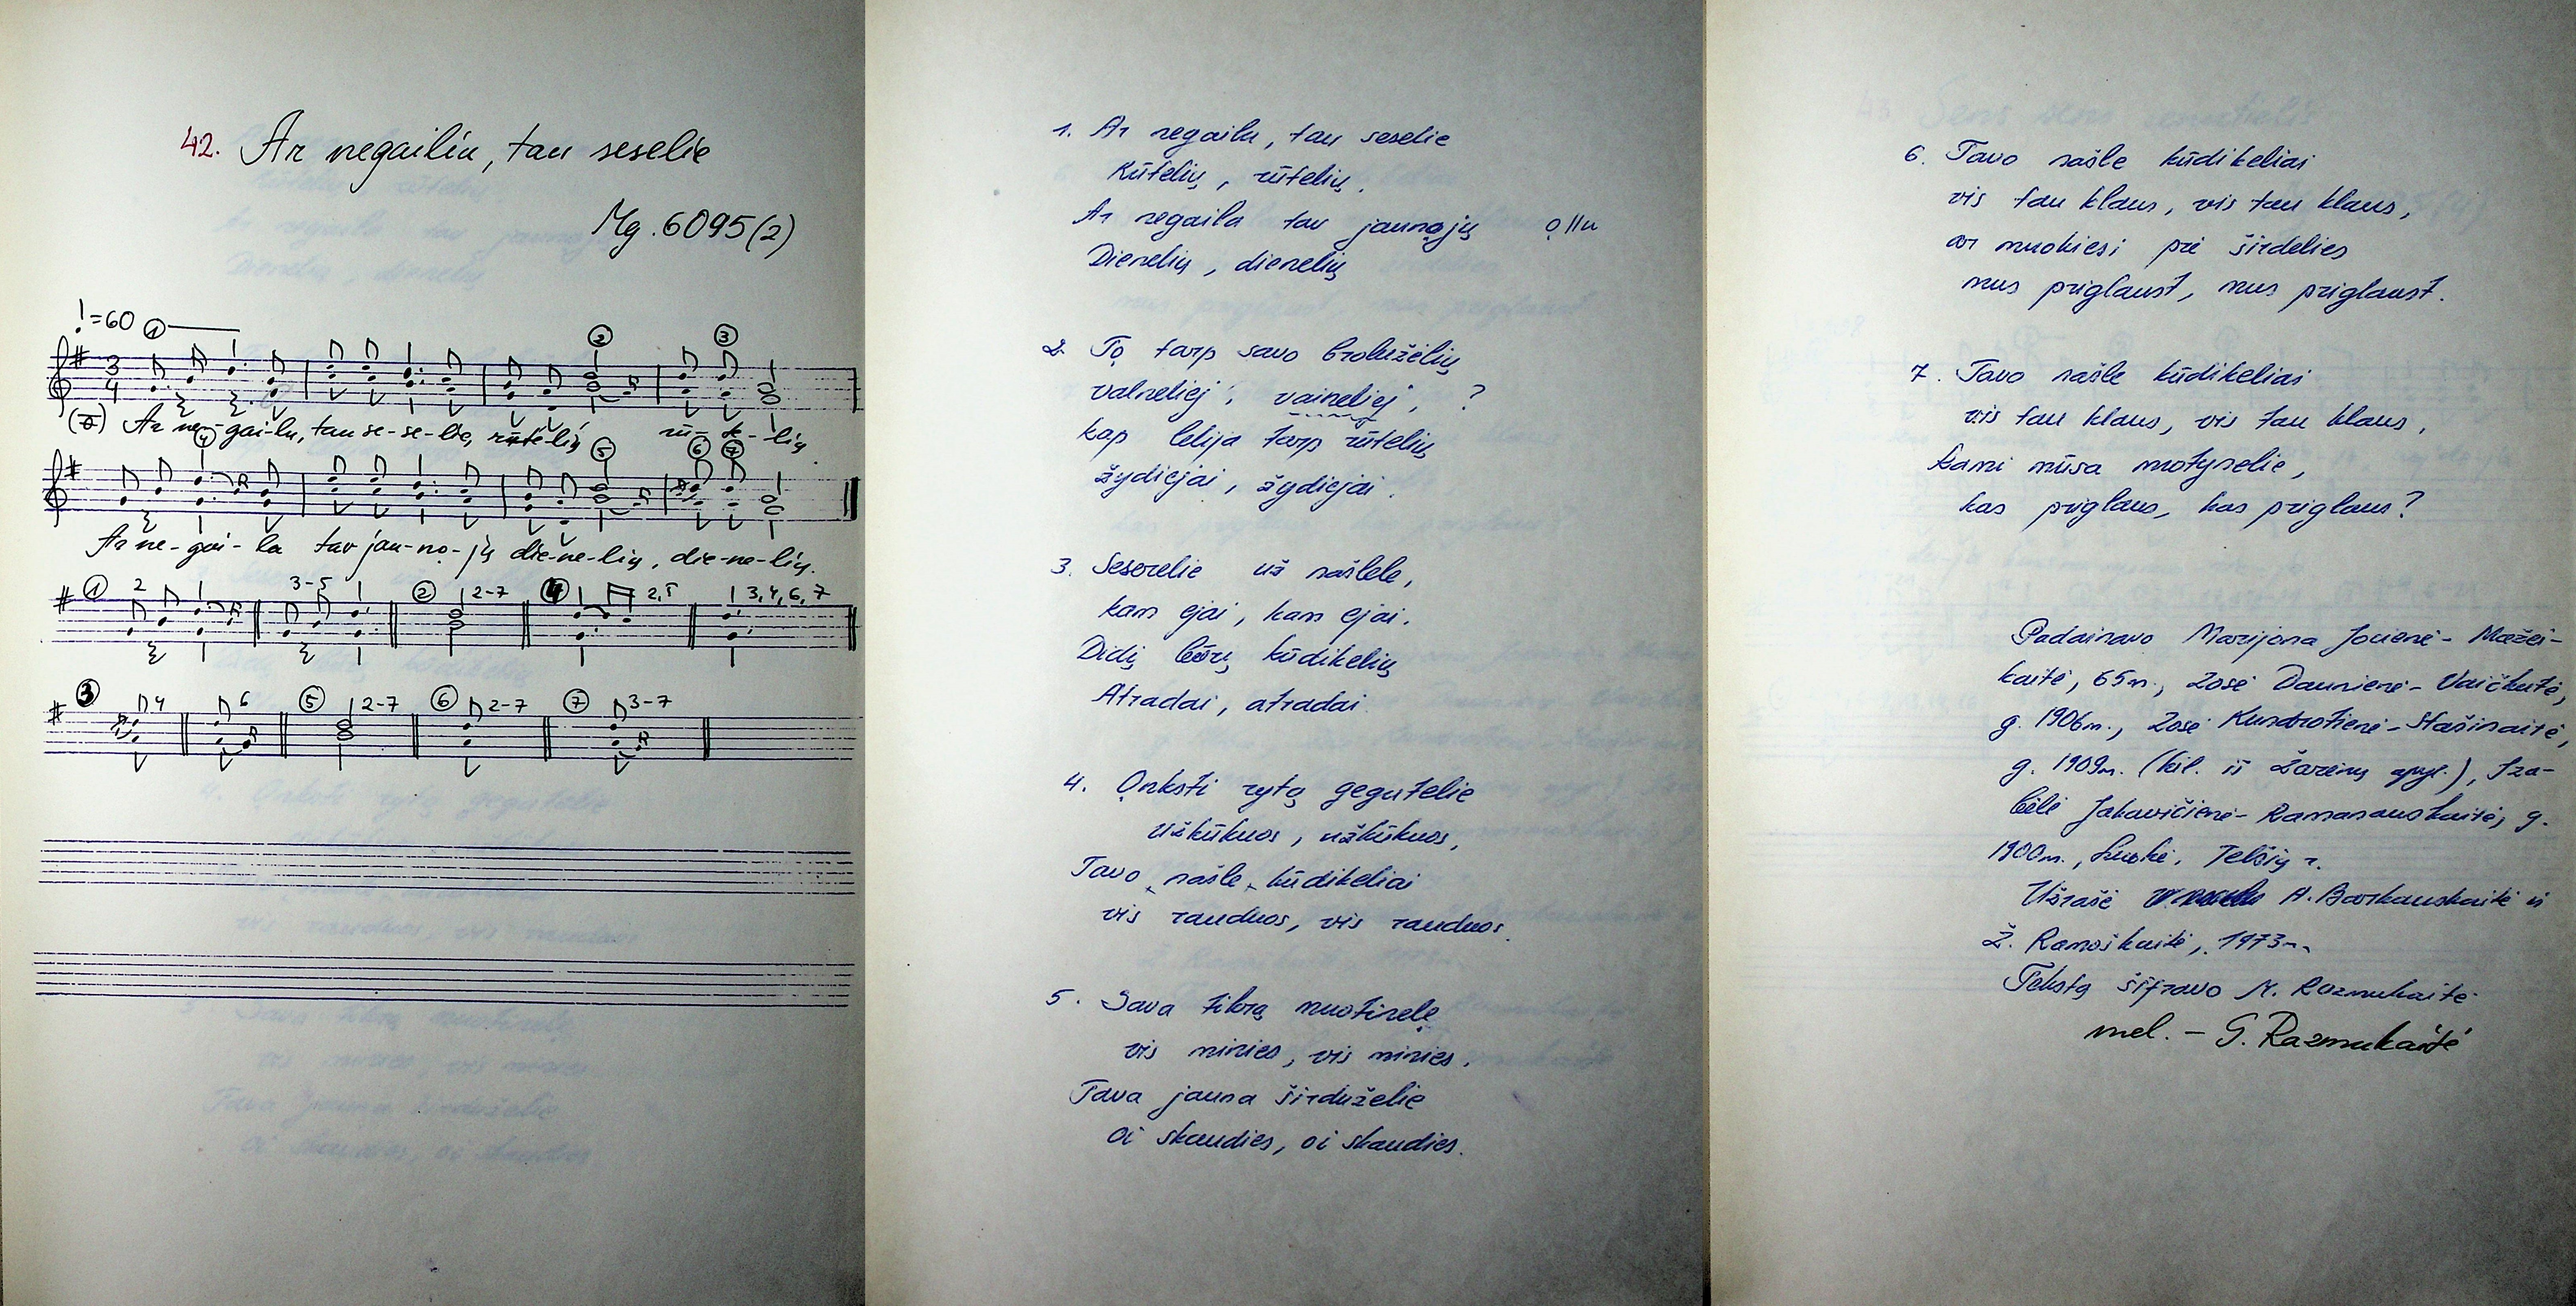 42. Ar negailiu, tau seselie
Mg. 6095(2)
=60 1
2 3
3
4
Ar ne-gai-lu, tau se-se-lie, rūtelių rū-te-lių
4 5 6 7
Ar ne-gai-la tav jau-no-jų die-ne-lių, die-ne-lių.
1 2 3-5 2 2-7 4 2,5 3,4,6,7
3 4 6 5 2-7 6 2-7 7 3-7
1. Ar negailu, tau seselie
Rūtelių, rūtelių,
Ar negaila tav jaunọjų ọ||u
Dienelių, dienelių
2. Tọ tarp savo brolužėlių
valneliej, vaineliej, ?
kap lelija tarp rūtelių
žydiejai, žydiejai.
3. Seserelie už našlele,
kam ejai, kam ejai.
Didį būrį kūdikelių
Atradai, atradai
4. Ọnksti rytą gegutelie
Užkūkuos, užkūkuos,
Tavo našle kūdikeliai
vis rauduos, vis rauduos.
5. Sava tikrą muotinelę
vis minies, vis minies.
Tava jauna širduželie
Oi skaudies, oi skaudies.
6. Tavo našle kūdikeliai
vis tau klaus, vis tau klaus,
ar muokiesi pri širdelies
mus priglaust, mus priglaust.
7. Tavo našle kūdikeliai
vis tau klaus, vis tau klaus,
kami mūsa motynelie,
kas priglaus, kas priglaus?
Padainavo Marijona Jocienė-Mažei-
kaitė, 65m., Zosė Daunienė-Vaičkutė,
g. 1906m., Zosė Kundrotienė-Stašinaitė,
g. 1909m. (kil. iš Žarėnų apyl.), Iza-
bėlė Jakavičienė-Ramanauskaitė, g.
1900m., Luokė, Telšių r.
Užrašė A. Barkauskaitė ir
Ž. Ramoškaitė, 1973m.
Tekstą šifravo N. Razmukaitė
mel. - G. Razmukaitė